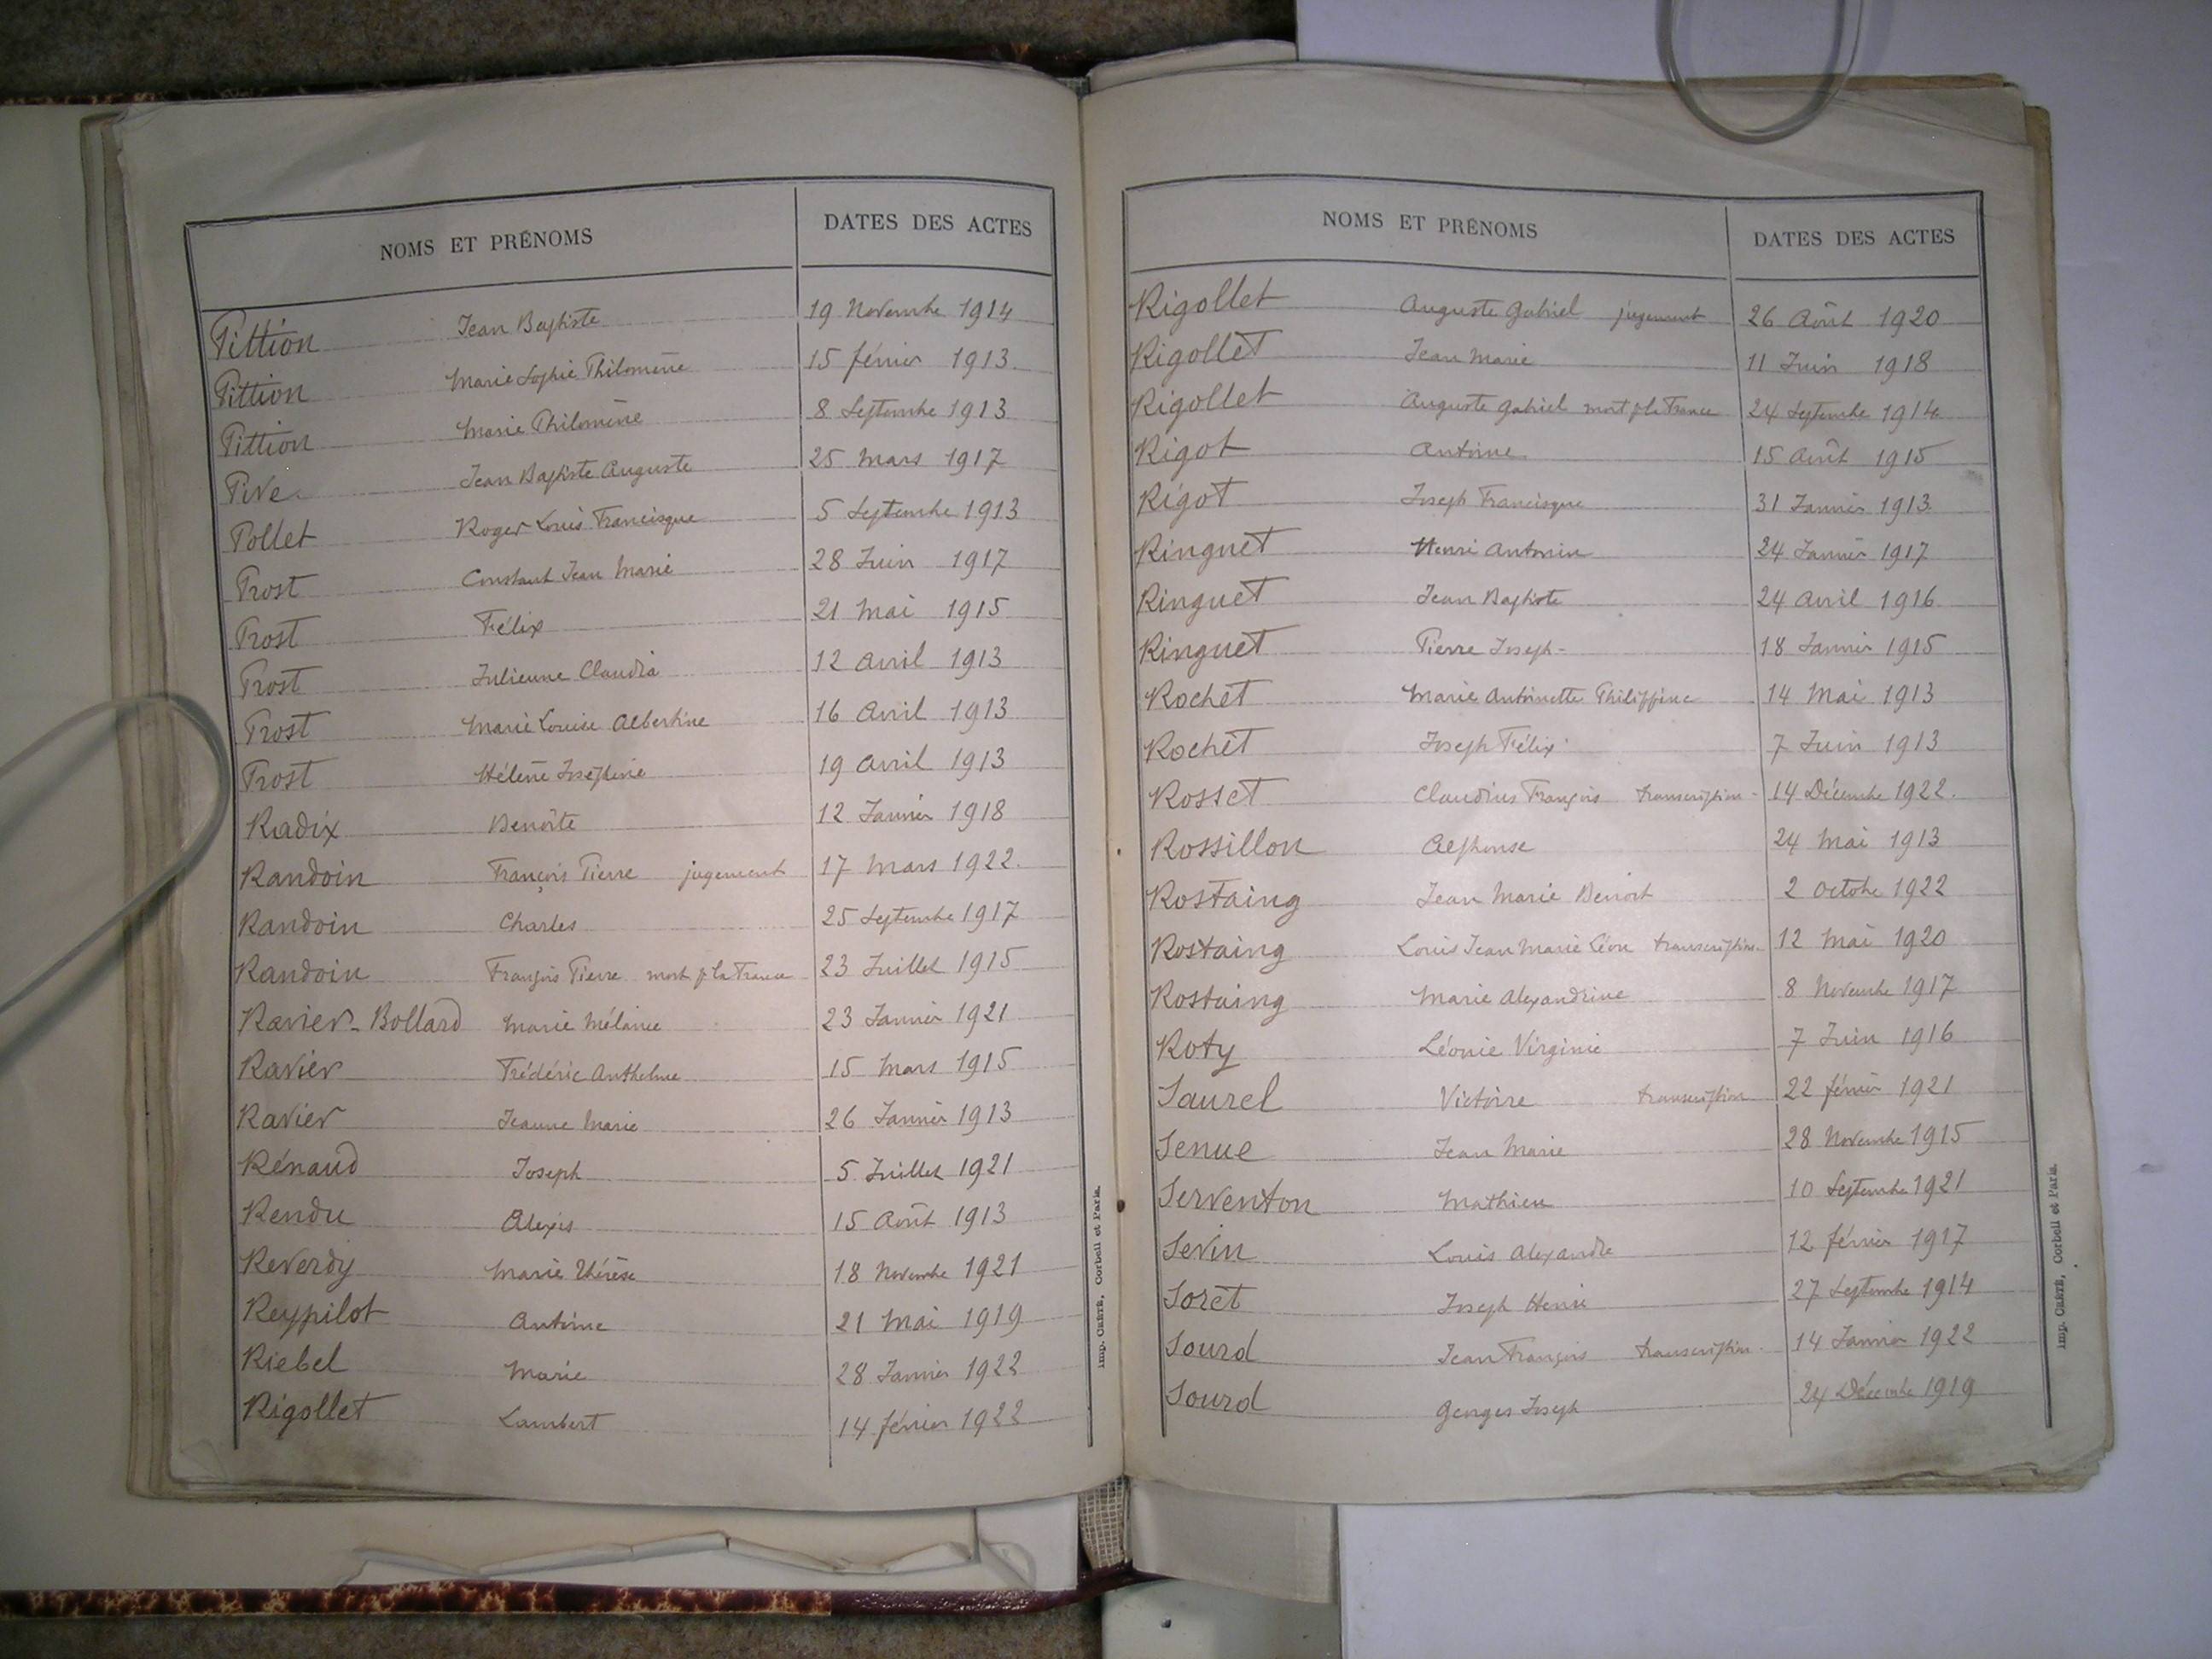 NOMS ET PRÉNOMS DATES DES ACTES
Pittion Jean Baptiste 19 Novembre 1914
Pittion Marie Sophie Philomène 15 février 1913
Pittion Marie Philomène 8 Septembre 1913
Pive Jean Baptiste Auguste 25 Mars 1917
Pollet Roger Louis Francisque 5 Septembre 1913
Prost Constant Jean Marie 28 Juin 1917
Prost Félix 21 Mai 1915
Prost Julienne Claudia 12 Avril 1913
Prost Marie Louise Albertine 16 Avril 1913
Prost Hélène Joséphine 19 Avril 1913
Radix Benoîte 12 Janvier 1918
Randoin François Pierre jugement 17 Mars 1922
Randoin Charles 25 Septembre 1917
Randoin François Pierre mort p la France 23 Juillet 1915
Ravier-Bollard Marie Mélanie 23 Janvier 1921
Ravier Frédéric Anthelme 15 Mars 1915
Ravier Jeanne Marie 26 Janvier 1913
Rénaud Joseph 5 Juillet 1921
Rendu Alexis 15 Août 1913
Reverdy Marie Thérèse 18 Novembre 1921
Reypilot Antoine 21 Mai 1919
Riebel Marie 28 Janvier 1922
Rigollet Lambert 14 février 1922
Imp. CRÉTÉ, Corbeil et Paris.
NOMS ET PRÉNOMS DATES DES ACTES
Rigollet Auguste Gabriel jugement 26 Août 1920
Rigollet Jean Marie 11 Juin 1918
Rigollet Auguste Gabriel mort p la France 24 Septembre 1914
Rigot Antoine 15 Août 1915
Rigot Joseph Francisque 31 Janvier 1913
Ringuet Henri Antonin 24 Janvier 1917
Ringuet Jean Baptiste 24 Avril 1916
Ringuet Pierre Joseph 18 Janvier 1915
Rochet Marie Antoinette Philippine 14 Mai 1913
Rochet Joseph Félix 7 Juin 1913
Rosset Claudius François transcription 14 Décembre 1922
Rossillon Alphonse 24 Mai 1913
Rostaing Jean Marie Benoît 2 Octobre 1922
Rostaing Louis Jean Marie Léon transcription 12 Mai 1920
Rostaing Marie Alexandrine 8 Novembre 1917
Roty Léonie Virginie 7 Juin 1916
Saurel Victoire transcription 22 février 1921
Senue Jean Marie 28 Novembre 1915
Serventon Mathieu 10 Septembre 1921
Sevin Louis Alexandre 12 février 1917
Soret Joseph Henri 27 Septembre 1914
Sourd Jean François transcription 14 Janvier 1922
Sourd Georges Joseph 24 Décembre 1919
Imp. CRÉTÉ, Corbeil et Paris.